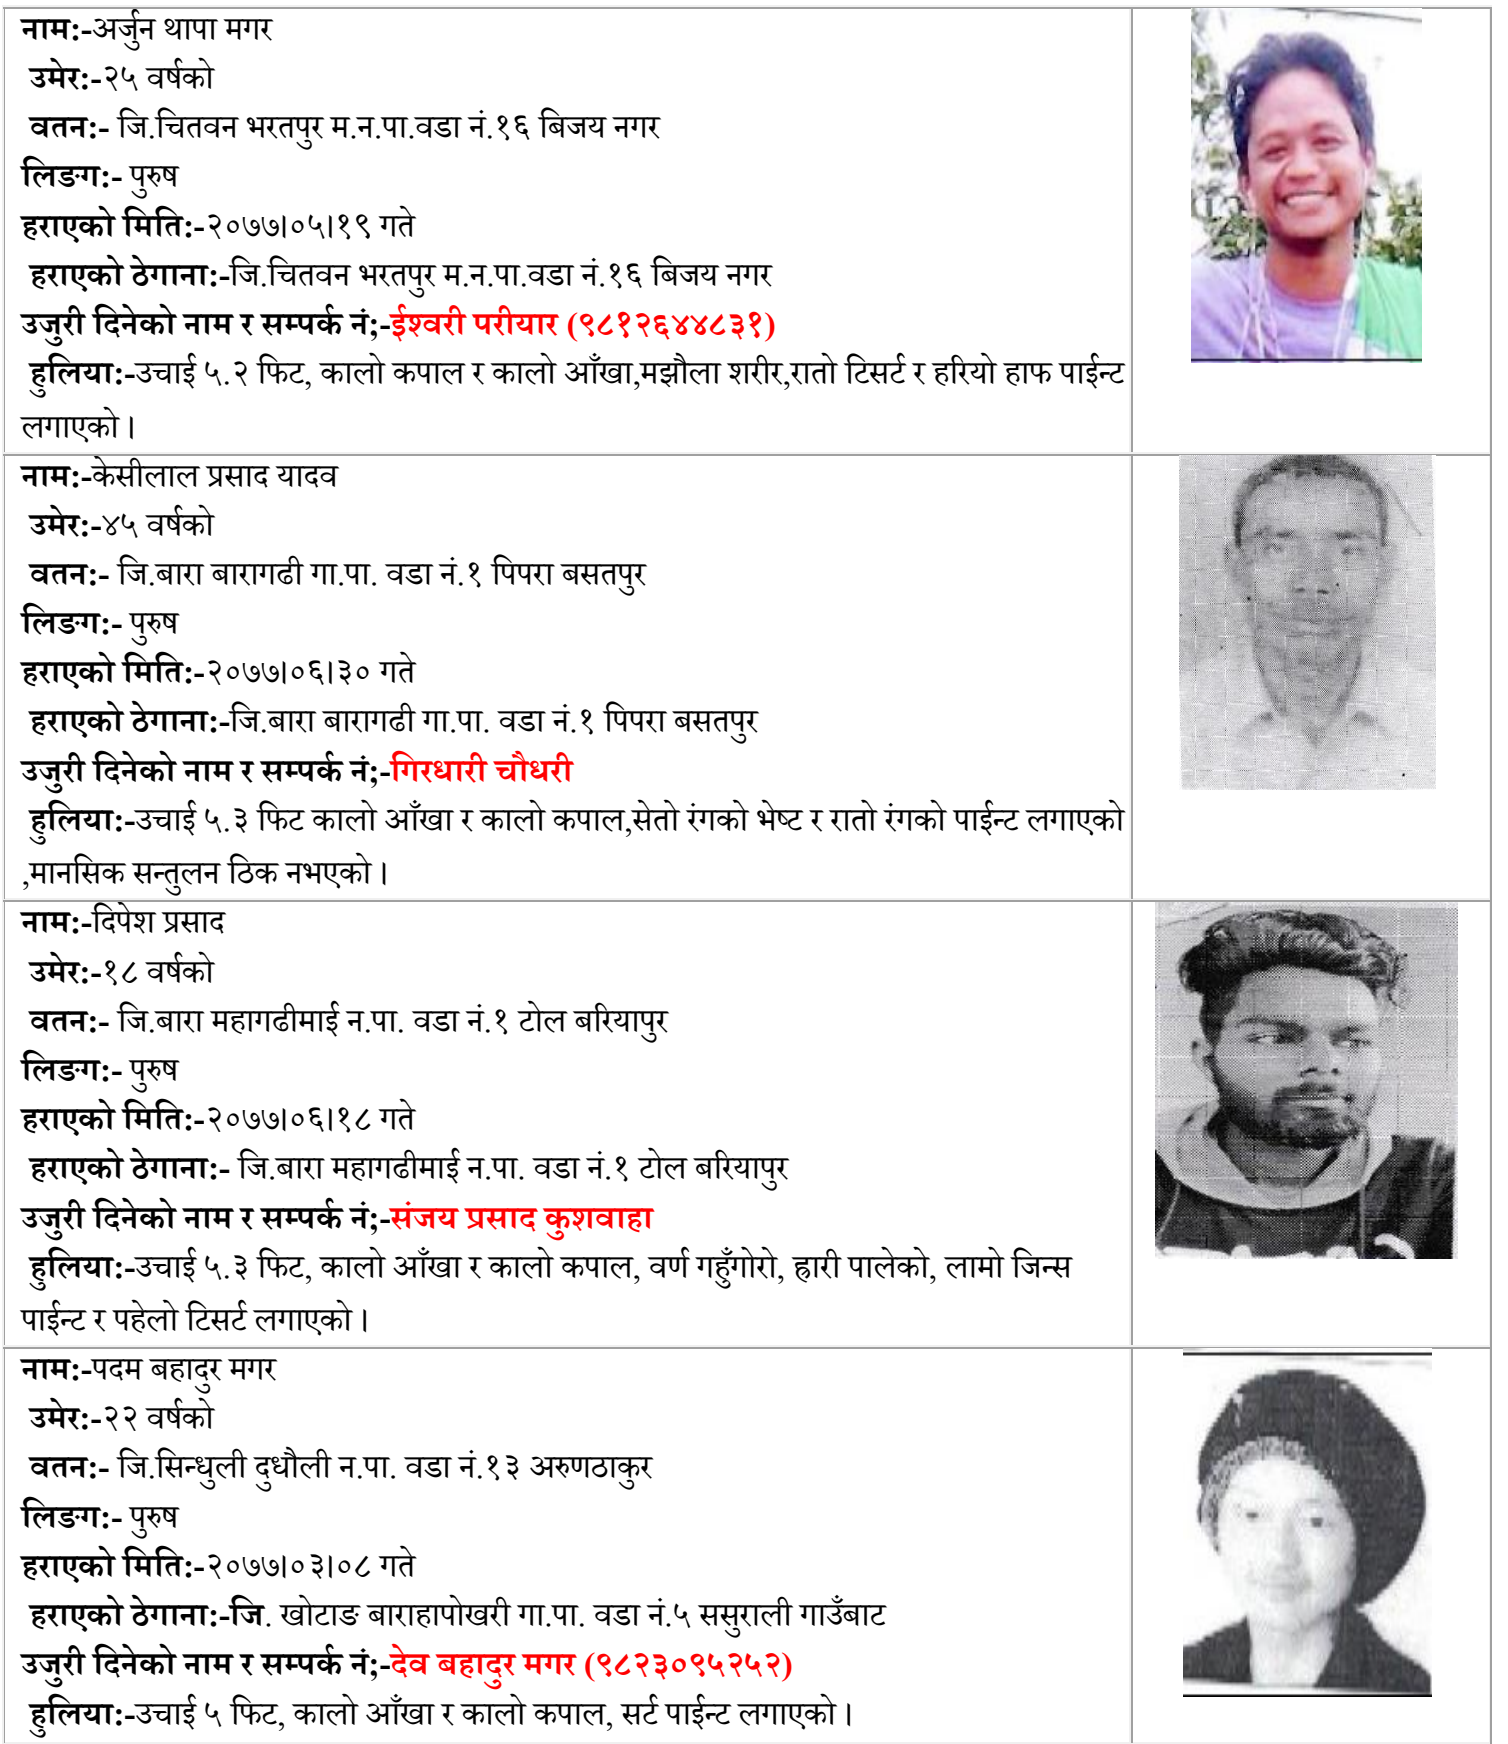 नाम:-अर्जुन थापा मगर
उमेर:-२५ वर्षको
वतन:- जि.चितवन भरतपुर म.न.पा.वडा नं.१६ बिजय नगर
लिङग:- पुरुष
हराएको मिति:-२०७७।०५।१९ गते
हराएको ठेगाना:-जि.चितवन भरतपुर म.न.पा.वडा नं.१६ बिजय नगर
उजुरी दिनेको नाम र सम्पर्क नं;-ईश्वरी परीयार (९८१२६४४८३१)
हुलिया:-उचाई ५.२ फिट, कालो कपाल र कालो आँखा,मझौला शरीर,रातो टिसर्ट र हरियो हाफ पाईन्ट
लगाएको।
नाम:-केसीलाल प्रसाद यादव
उमेर:-४५ वर्षको
वतन:- जि.बारा बारागढी गा.पा. वडा नं.१ पिपरा बसतपुर
लिङग:- पुरुष
हराएको मिति:-२०७७।०६।३० गते
हराएको ठेगाना:-जि.बारा बारागढी गा.पा. वडा नं.१ पिपरा बसतपुर
उजुरी दिनेको नाम र सम्पर्क नं;-गिरधारी चौधरी
हुलिया:-उचाई ५.३ फिट कालो आँखा र कालो कपाल,सेतो रंगको भेष्ट र रातो रंगको पाईन्ट लगाएको
,मानसिक सन्तुलन ठिक नभएको।
नाम:-दिपेश प्रसाद
उमेर:-१८ वर्षको
वतन:- जि.बारा महागढीमाई न.पा. वडा नं.१ टोल बरियापुर
लिङग:- पुरुष
हराएको मिति:-२०७७।०६।१८ गते
हराएको ठेगाना:- जि.बारा महागढीमाई न.पा. वडा नं.१ टोल बरियापुर
उजुरी दिनेको नाम र सम्पर्क नं;-संजय प्रसाद कुशवाहा
हुलिया:-उचाई ५.३ फिट, कालो आँखा र कालो कपाल, वर्ण गहुँगोरो, ह्रारी पालेको, लामो जिन्स
पाईन्ट र पहेलो टिसर्ट लगाएको।
नाम:-पदम बहादुर मगर
उमेर:-२२ वर्षको
वतन:- जि.सिन्धुली दुधौली न.पा. वडा नं.१३ अरुणठाकुर
लिङग:- पुरुष
हराएको मिति:-२०७७।०३।०८ गते
हराएको ठेगाना:-जि. खोटाङ बाराहापोखरी गा.पा. वडा नं.५ ससुराली गाउँबाट
उजुरी दिनेको नाम र सम्पर्क नं;-देव बहादुर मगर (९८२३०९५२५२)
हुलिया:-उचाई ५ फिट, कालो आँखा र कालो कपाल, सर्ट पाईन्ट लगाएको।